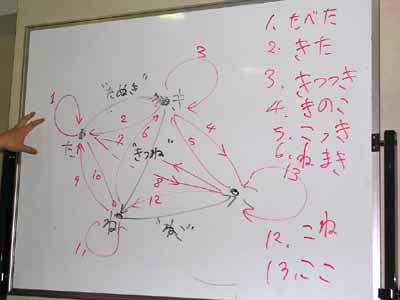 1. たべた
2. きた
3. きつつき
4. きのこ
5. こっき
6. ねまき
12. こね
13. ここ
"たぬき"
き
3
1
2
4
6
5
た
"きつね"
9
10
8
12
13
ね
"ねこ"
11